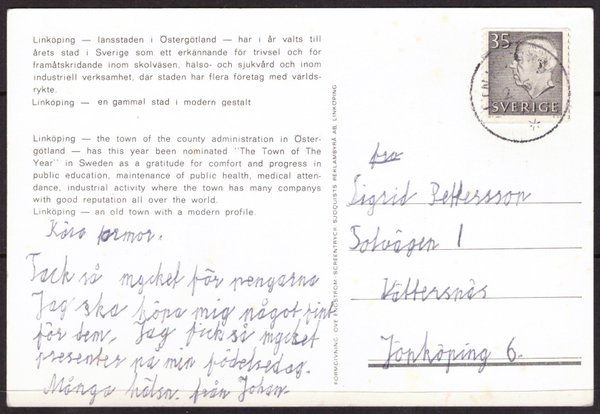 Linköping — länsstaden i Östergötland — har i år valts till
årets stad i Sverige som ett erkännande för trivsel och för
framåtskridande inom skolväsen, hälso- och sjukvård och inom
industriell verksamhet, där staden har flera företag med världs-
rykte.
Linköping — en gammal stad i modern gestalt
Linköping — the town of the county administration in Öster-
götland — has this year been nominated "The Town of The
Year" in Sweden as a gratitude for comfort and progress in
public education, maintenance of public health, medical atten-
dance, industrial activity where the town has many companys
with good reputation all over the world.
Linköping — an old town with a modern profile.
Kära farmor.
Tack så mycket för pengarna
Jag ska köpa mig något fint
för dem. Jag fick så mycket
presenter på min födelsedag.
Många hälsn. från Johan
FORMGIVNING: OVE ENGSTRÖM · SCREENTRYCK: SJÖQUISTS REKLAMBYRÅ AB, LINKÖPING
35
SVERIGE
fru
Sigrid Pettersson
Solvägen 1
Vättersnäs
Jönköping 6.